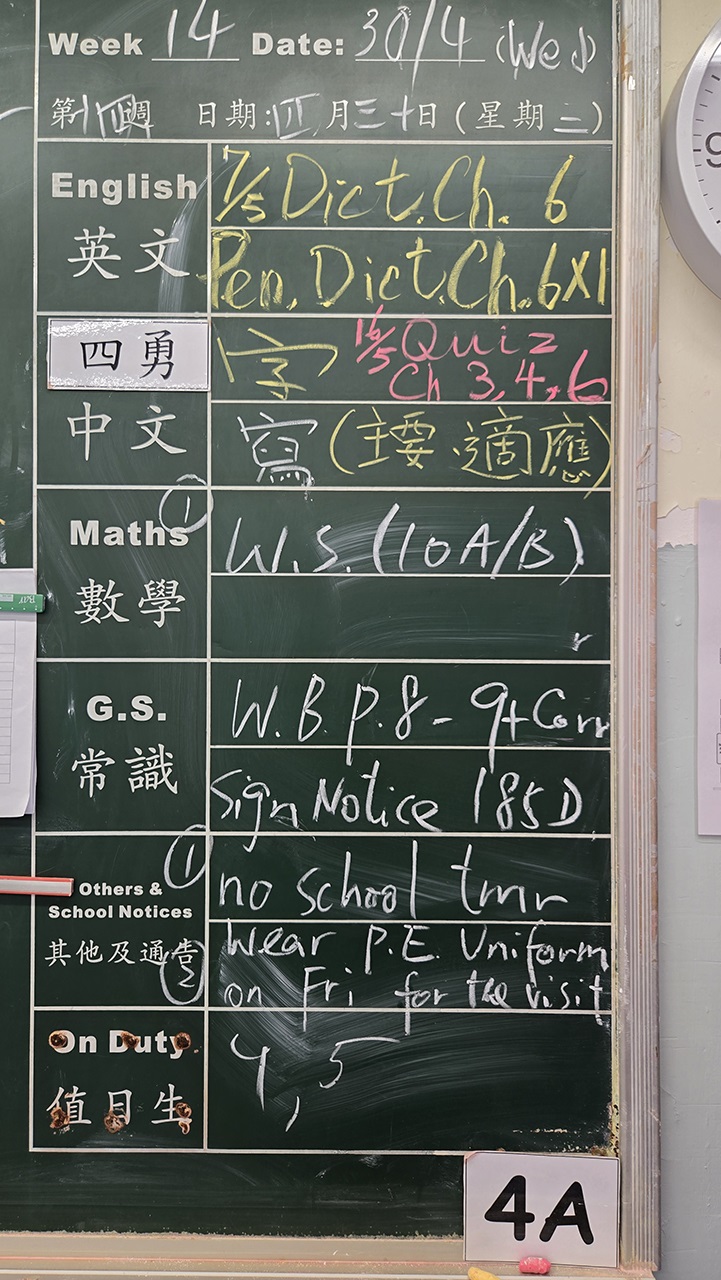 Week 14 Date: 30/4 (Wed)
第十四週 日期:四月三十日(星期三)
English 7/5 Dict. Ch. 6
英文 Pen. Dict. Ch. 6X1
四勇 字 16/5 Quiz
Ch 3, 4, 6
中文 寫(主要.適應)
① 
Maths W.S. (10A/B)
數學
G.S. W.B. P.8 - 9+Corr
常識 Sign Notice 185D
① no school tmr
Others &
School Notices
其他及通告 ② Wear P.E. Uniform
on Fri for the visit
On Duty 4, 5
值日生
4A
9